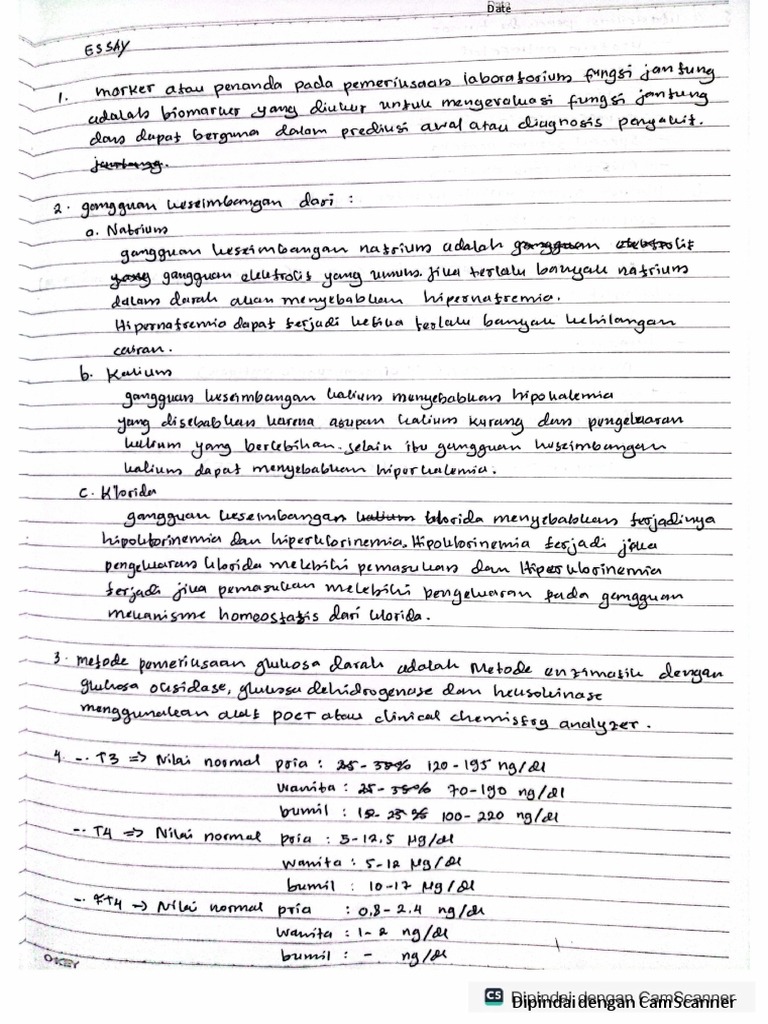 Date
ESSAY
1. marker atau penanda pada pemeriksaan laboratorium fungsi jantung
adalah biomarker yang diukur untuk mengevaluasi fungsi jantung
dan dapat berguna dalam prediksi awal atau diagnosis penyakit.
jantung.
2. gangguan keseimbangan dari :
a. Natrium
gangguan keseimbangan natrium adalah gangguan elektrolit
yang gangguan elektrolit yang umum. jika terlalu banyak natrium
dalam darah akan menyebabkan hipernatremia.
Hipernatremia dapat terjadi ketika terlalu banyak kehilangan
cairan.
b. Kalium
gangguan keseimbangan kalium menyebabkan hipokalemia
yang disebabkan karena asupan kalium kurang dan pengeluaran
kalium yang berlebihan. selain itu gangguan keseimbangan
kalium dapat menyebabkan hiperkalemia.
c. Klorida
gangguan keseimbangan kalium klorida menyebabkan terjadinya
hipoklorinemia dan hiperklorinemia. Hipoklorinemia terjadi jika
pengeluaran klorida melebihi pemasukan dan Hiperklorinemia
terjadi jika pemasukan melebihi pengeluaran pada gangguan
mekanisme homeostatis dari klorida.
3. metode pemeriksaan glukosa darah adalah Metode enzimatik dengan
glukosa oksidase, glukosa dehidrogenase dan heksokinase
menggunakan alat POCT atau clinical chemistry analyzer.
4. -. T3 => Nilai normal pria : 25-38% 120-195 ng/dl
wanita : 25-35% 70-190 ng/dl
bumil : 15-25% 100-220 ng/dl
-. T4 => Nilai normal pria : 5-12,5 µg/dl
wanita : 5-12 µg/dl
bumil : 10-17 µg/dl
-. FT4 -> Nilai normal pria : 0,8-2,4 ng/dl
wanita : 1-2 ng/dl
bumil : - ng/dl
OKEY
CS Dipindai dengan CamScanner